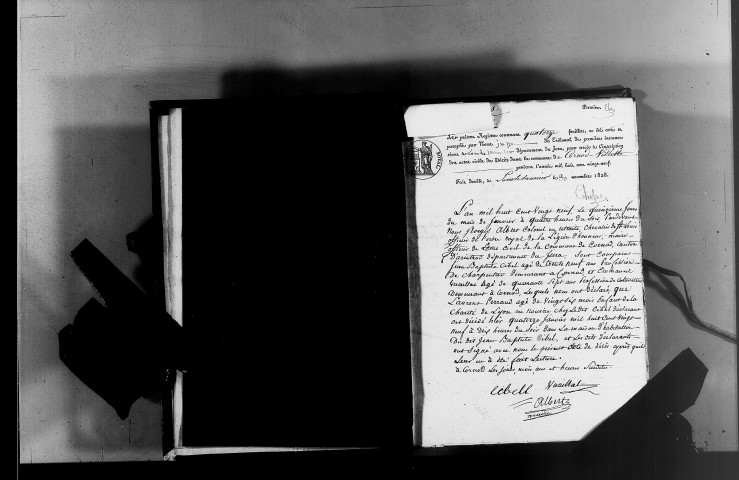 Premier
Le présent Registre contenant quatorze feuillets, a été coté et
paraphé par Nous juge du Tribunal de première instance
séant à Lons-le-Saunier département du Jura, pour servir à l'inscription
des actes civils des Décès dans la commune de Cornod
pendant l'année mil huit cent vingt-neuf.
Fait double, à Lons-le-Saunier le 30 novembre 1828.
L'an mil huit Cent Vingt neuf, le quinzieme jour
du mois de Janvier à quatre heures du soir, Pardevant
Nous Georges Albert Colonel en retraite, Chevalier de St Louis
officier de l'ordre royal de la Légion d'honneur, maire
officier de L'état Civil de la Commune de Cornod, Canton
D'arinthod département du Jura, Sont Comparus
Jean Baptiste Cibel agé de trente neuf ans Profession
de charpentier demeurant a Cornod et Emmanuel
Vuaillat agé de quarante Sept ans Profession de Cultivateur
Demeurant à Cornod, Lesquels nous ont déclaré, que
Laurent Perraud agé de Vingt Six mois Enfant de la
Charité de Lyon en nourrice chez Ledit Cibel déclarant
est décédé hier quatorze Janvier mil huit Cent Vingt
neuf à dix heures du Soir Dans La maison d'habitation
Du dit Jean Baptiste Cibel, et Les dits déclarants
ont Signé avec nous le présent acte de décès après que
Leur en a été fait Lecture.
à Cornod Les jour, mois, an et heure Susdits
Cibell Vuaillat
Albert
maire